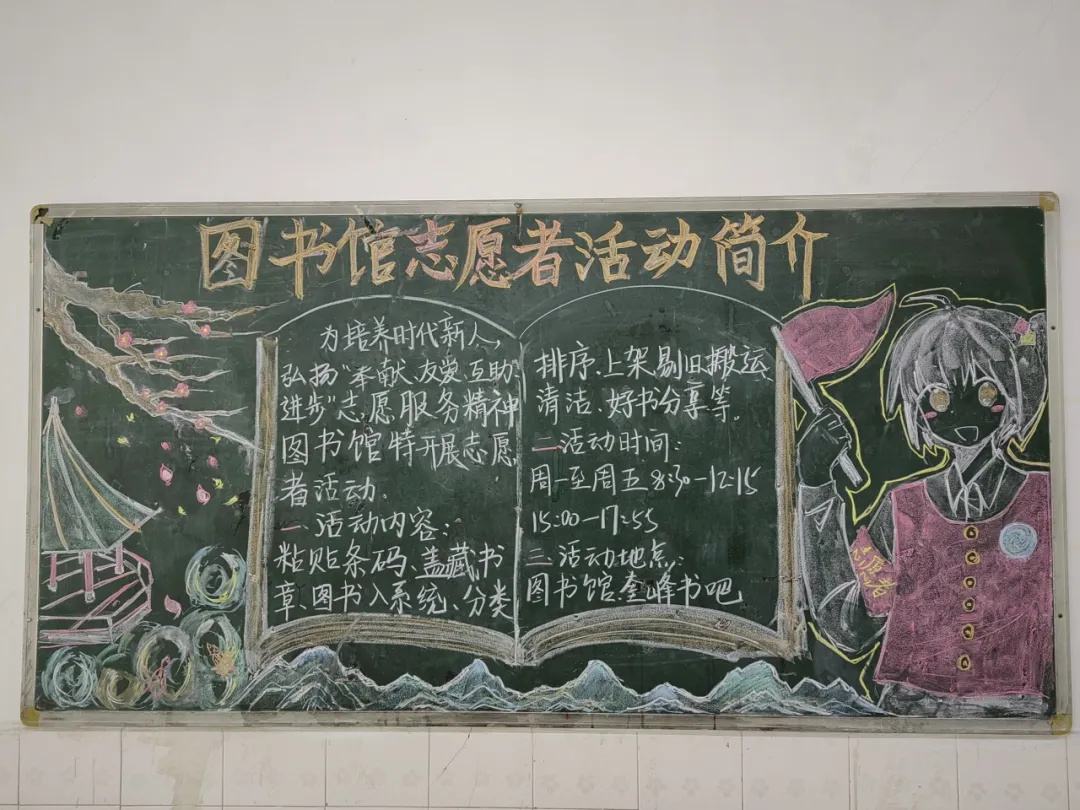 图书馆志愿者活动简介
为培养时代新人，
弘扬“奉献、友爱、互助、
进步”志愿服务精神
图书馆特开展志愿
者活动.
一、活动内容：
粘贴条码、盖藏书
章、图书入系统、分类
排序、上架、剔旧、搬运、
清洁、好书分享等。
二、活动时间：
周一至周五 8:30—12:15
15:00—17:55
三、活动地点：
图书馆、奎峰书吧
志愿者